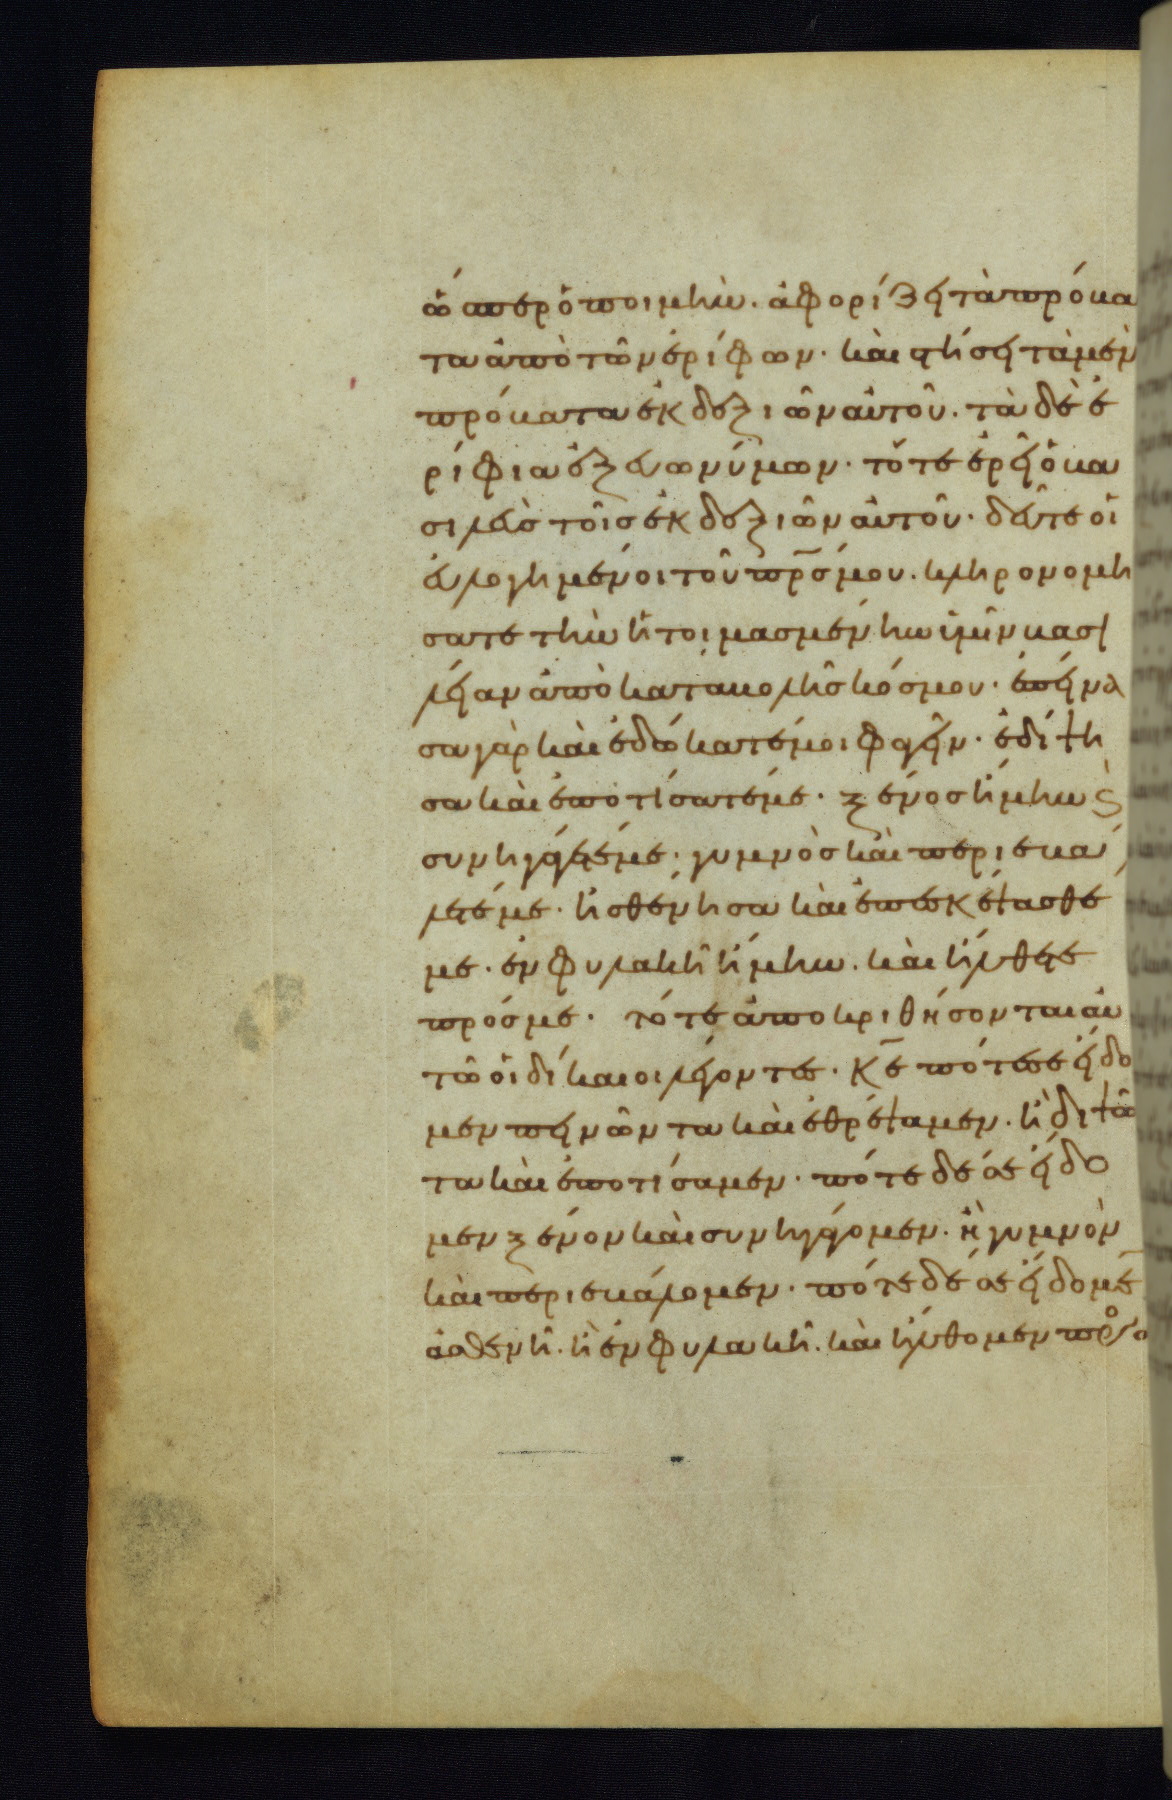 ὥσπερ ὁ ποιμὴν. ἀφορίζει τὰ πρόβα
τα ἀπὸ τῶν ἐρίφων· καὶ στήσει τὰ μὲν
πρόβατα ἐκ δεξιῶν αὐτοῦ. τὰ δὲ ἐ
ρίφια ἐξ εὐωνύμων· τότε ἐρεῖ ὁ βα
σιλεὺς τοῖς ἐκ δεξιῶν αὐτοῦ· δεῦτε οἱ
εὐλογημένοι τοῦ πρ̅σ μου. κληρονομή
σατε τὴν ἡτοιμασμένην ὑμῖν βασι
λείαν ἀπὸ καταβολῆς κόσμου· ἐπείνα
σα γὰρ καὶ ἐδώκατέ μοι φαγεῖν· ἐδίψη
σα καὶ ἐποτίσατέ με· ξένος ἤμην ϗ
συνηγάγετέ με· γυμνὸς καὶ περιεβά
λετέ με· ἠσθένησα καὶ ἐπεσκέψασθέ
με· ἐν φυλακῆ ἤμην. καὶ ἤλθετε
πρός με· τότε ἀποκριθήσονται αὐ
τῶ οἱ δίκαιοι λέγοντες· κ̅ε πότε σε εἴδο
μεν πεινῶντα καὶ ἐθρέψαμεν. ἢ διψῶ
τα καὶ ἐποτίσαμεν· πότε δέ σε εἴδο
μεν ξένον καὶ συνηγάγομεν. ἢ γυμνὸν
καὶ περιεβάλομεν· πότε δέ σε εἴδομε̅
ἀσθενῆ. ἢ ἐν φυλακῆ. καὶ ἤλθομεν πρός σε